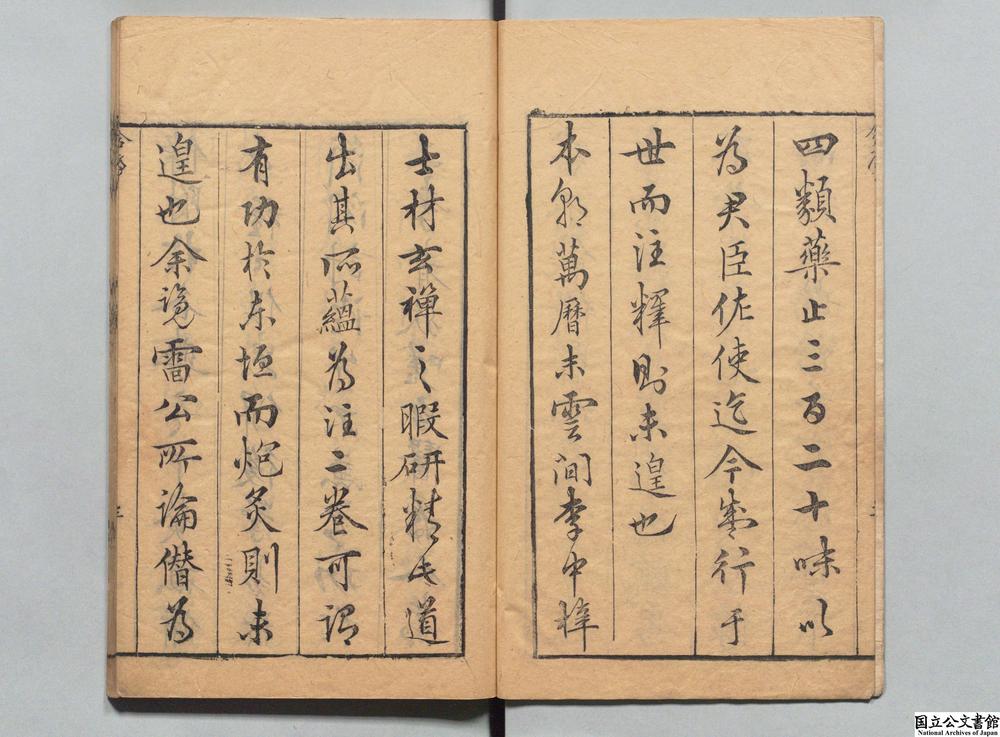 四類藥止三百二十味以
為君臣佐使迄今盛行于
世而注釋則未遑也
本朝萬曆末雲間李中梓
士材玄禪之暇研精此道
出其所蘊為注二卷可謂
有功於东垣而炮炙則未
遑也余覓雷公所論僣為
国立公文書館
National Archives of Japan